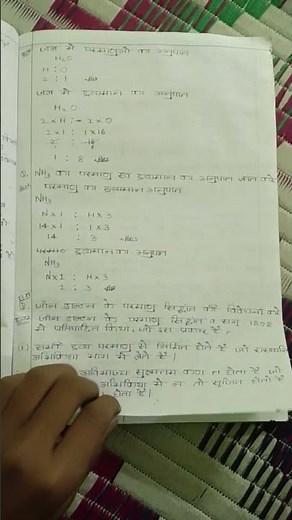 जल में परमाणुओं का अनुपात
H₂O
H : O
2 : 1
जल में द्रव्यमान का अनुपात
H₂O
2×H : 1×O
2×1 : 1×16
2 : 16
1 : 8
Q. NH₃ का परमाणु एवं द्रव्यमान का अनुपात ज्ञात करें
परमाणु का द्रव्यमान अनुपात
NH₃
N×1 : H×3
14×1 : 1×3
14 : 3
परमाणु का अनुपात
NH₃
N×1 : H×3
1 : 3
जॉन डाल्टन के परमाणु सिद्धांत की विवेचना करें
जॉन डाल्टन के परमाणु सिद्धांत सन् 1808
में प्रतिपादित किया जो इस प्रकार है -
(i) सभी द्रव्य परमाणु से निर्मित होते हैं जो रासायनिक
अभिक्रिया भाग में लेते हैं।
अविभाज्य सूक्ष्मतम कण होता है जो
अभिक्रिया में न तो सृजित होते हैं
होता है।